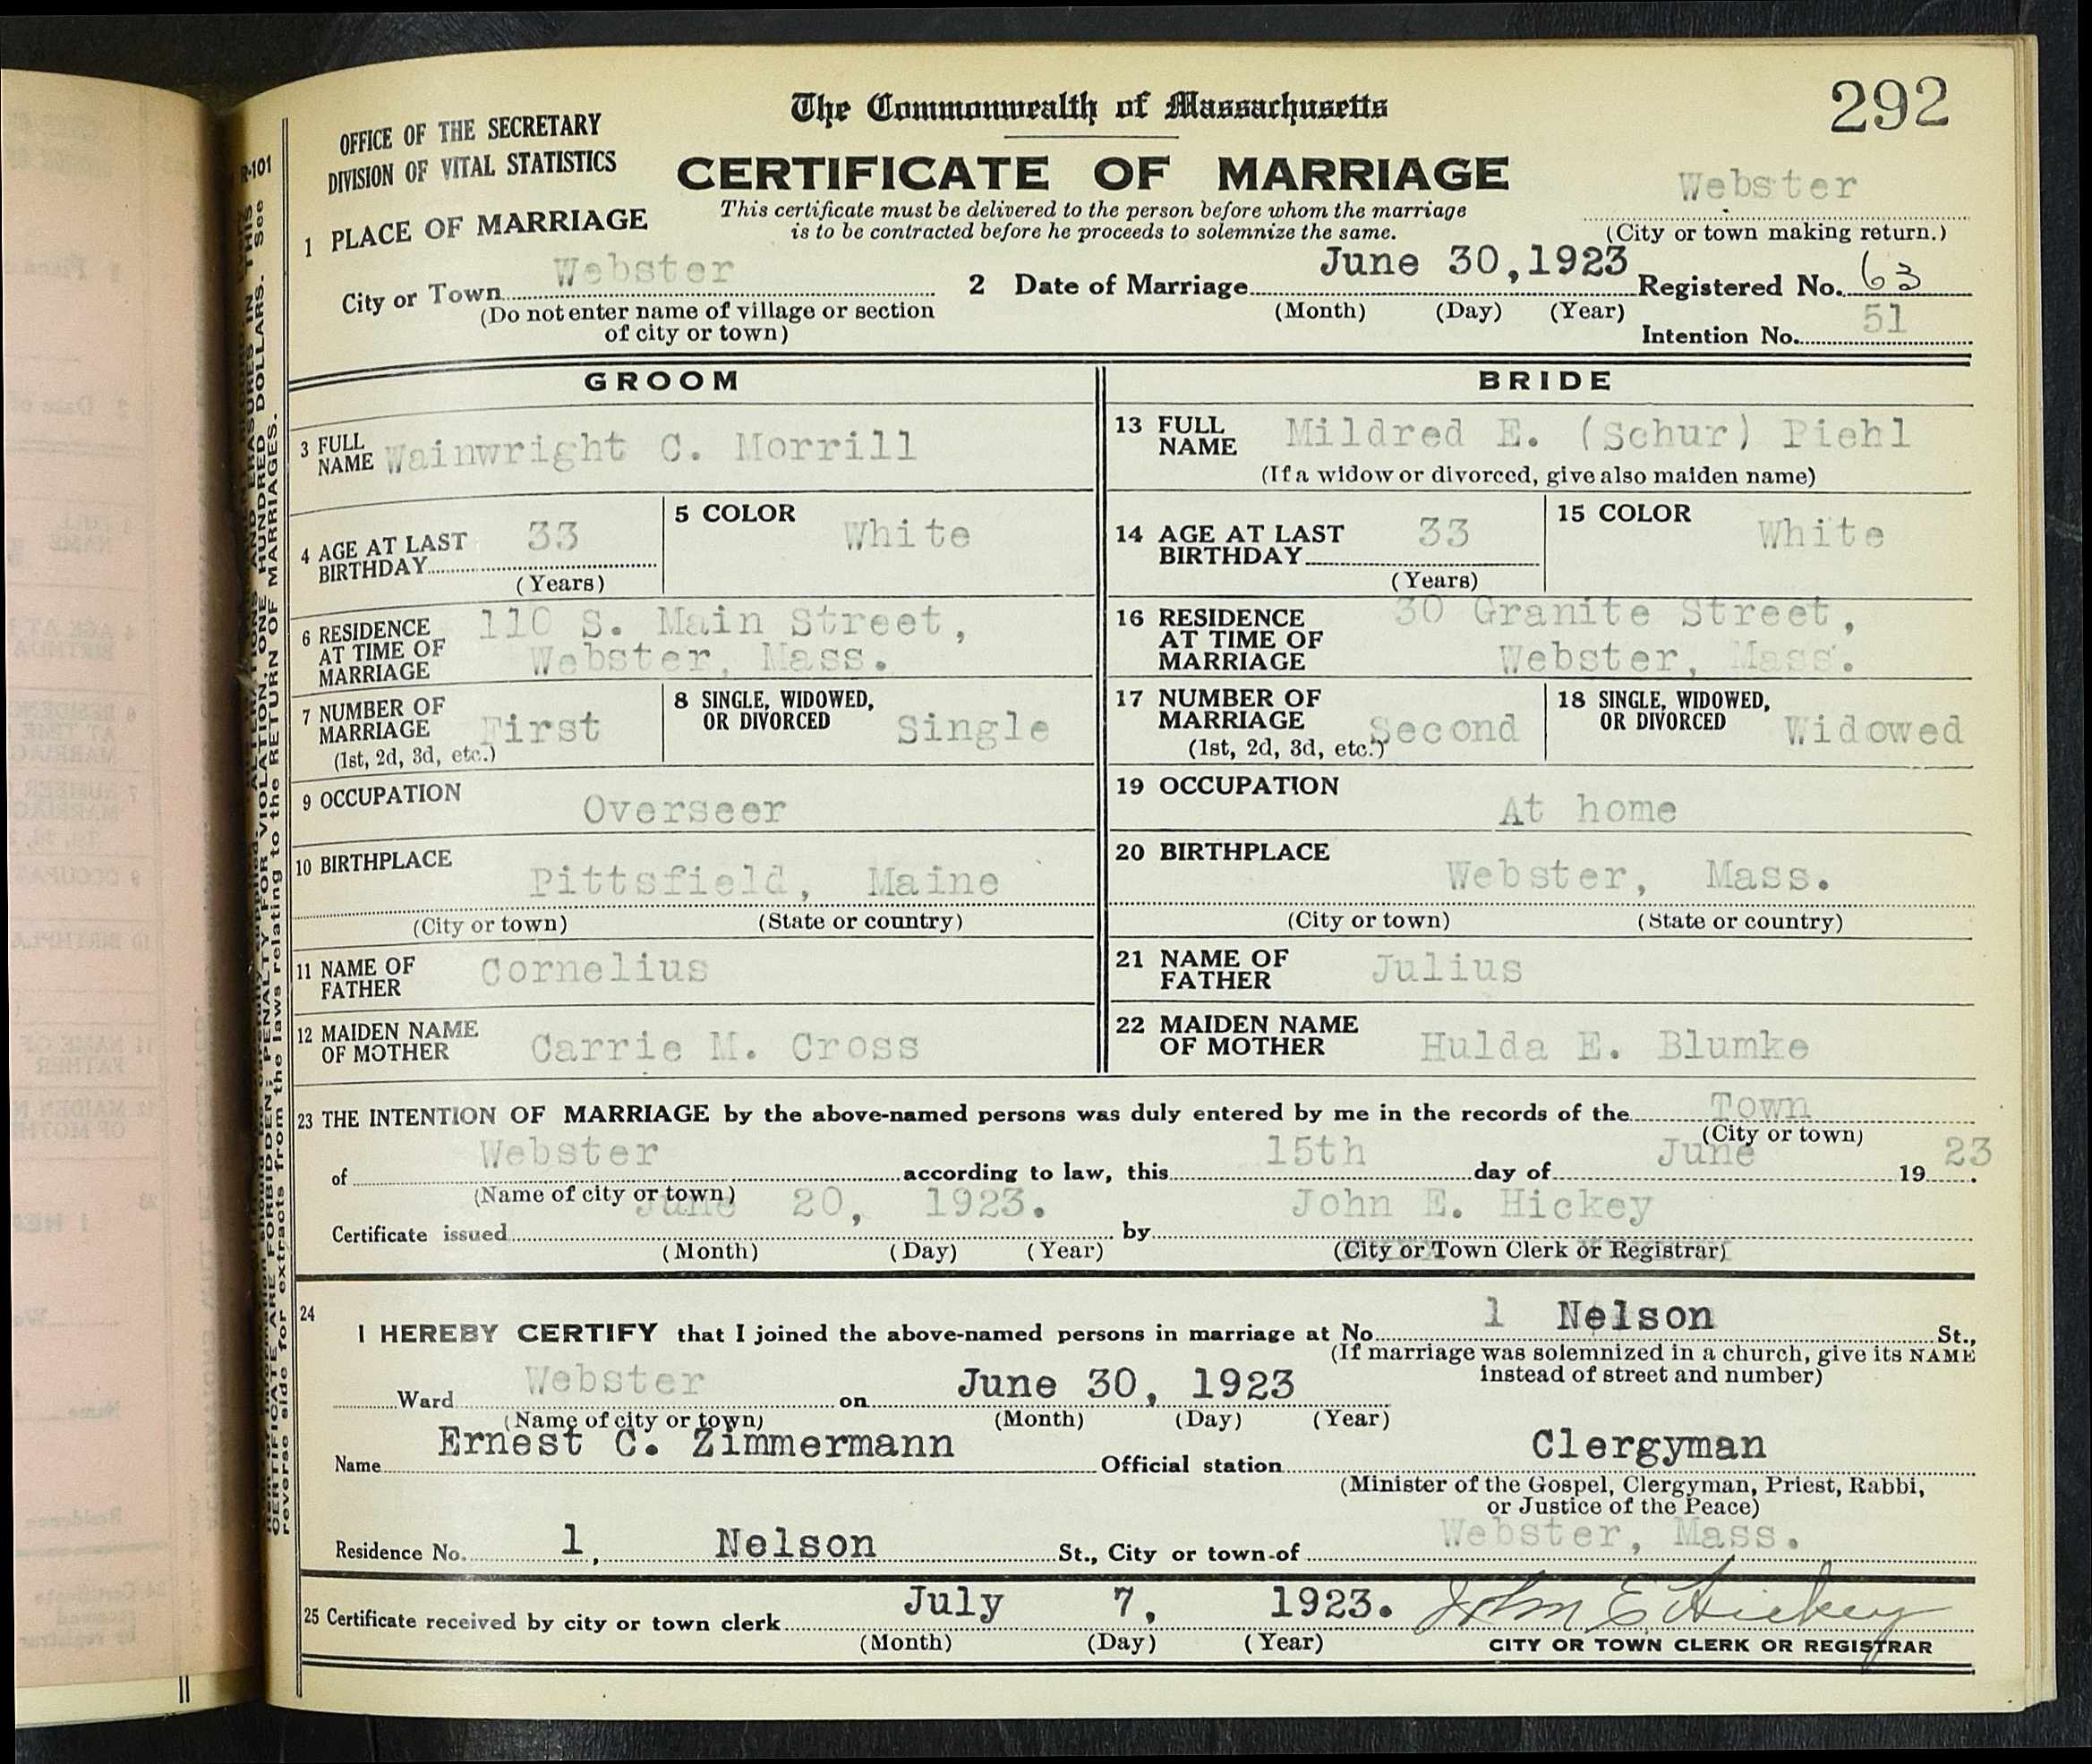 292
The Commonwealth of Massachusetts
OFFICE OF THE SECRETARY
DIVISION OF VITAL STATISTICS
CERTIFICATE OF MARRIAGE
This certificate must be delivered to the person before whom the marriage
is to be contracted before he proceeds to solemnize the same.
Webster
(City or town making return.)
1 PLACE OF MARRIAGE
City or Town Webster
(Do not enter name of village or section
of city or town)
2 Date of Marriage June 30, 1923
(Month) (Day) (Year)
Registered No. 63
Intention No. 51
GROOM
3 FULL NAME Wainwright C. Morrill
4 AGE AT LAST BIRTHDAY 33
(Years)
5 COLOR White
6 RESIDENCE AT TIME OF MARRIAGE 110 S. Main Street,
Webster, Mass.
7 NUMBER OF MARRIAGE First
(1st, 2d, 3d, etc.)
8 SINGLE, WIDOWED, OR DIVORCED Single
9 OCCUPATION Overseer
10 BIRTHPLACE Pittsfield, Maine
(City or town) (State or country)
11 NAME OF FATHER Cornelius
12 MAIDEN NAME OF MOTHER Carrie M. Cross
BRIDE
13 FULL NAME Mildred E. (Schur) Piehl
(If a widow or divorced, give also maiden name)
14 AGE AT LAST BIRTHDAY 33
(Years)
15 COLOR White
16 RESIDENCE AT TIME OF MARRIAGE 30 Granite Street,
Webster, Mass.
17 NUMBER OF MARRIAGE Second
(1st, 2d, 3d, etc.)
18 SINGLE, WIDOWED, OR DIVORCED Widowed
19 OCCUPATION At home
20 BIRTHPLACE Webster, Mass.
(City or town) (State or country)
21 NAME OF FATHER Julius
22 MAIDEN NAME OF MOTHER Hulda E. Blumke
23 THE INTENTION OF MARRIAGE by the above-named persons was duly entered by me in the records of the Town
(City or town)
of Webster according to law, this 15th day of June 19 23.
(Name of city or town)
Certificate issued June 20, 1923. by John E. Hickey
(Month) (Day) (Year) (City or Town Clerk or Registrar)
24 I HEREBY CERTIFY that I joined the above-named persons in marriage at No. 1 Nelson St.,
(If marriage was solemnized in a church, give its NAME
instead of street and number)
Ward Webster on June 30, 1923
(Name of city or town) (Month) (Day) (Year)
Name Ernest C. Zimmermann Official station Clergyman
(Minister of the Gospel, Clergyman, Priest, Rabbi,
or Justice of the Peace)
Residence No. 1, Nelson St., City or town of Webster, Mass.
25 Certificate received by city or town clerk July 7, 1923. John E Hickey
(Month) (Day) (Year) CITY OR TOWN CLERK OR REGISTRAR
R-101
CERTIFICATE ARE FORBIDDEN; PENALTY FOR VIOLATION, ONE HUNDRED DOLLARS. See
reverse side for extracts from the laws relating to the RETURN OF MARRIAGES.